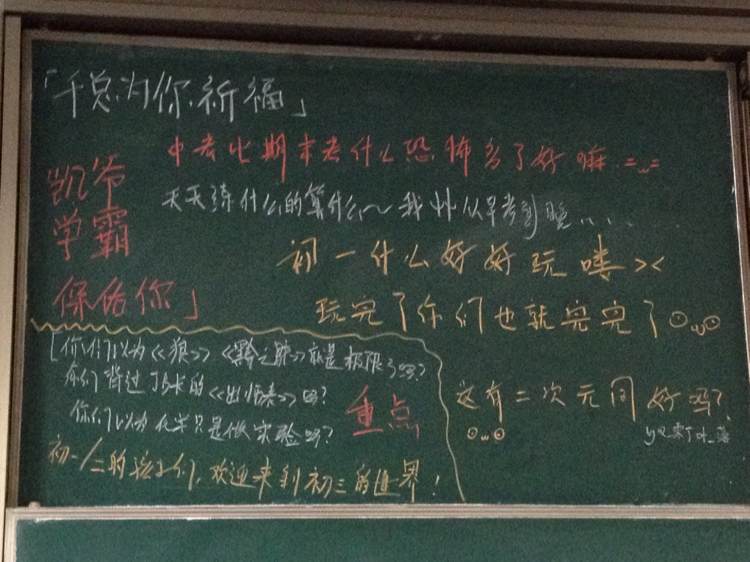 「千总为你祈福」
凯爷
学霸
保佑你」
中考比期末考什么恐怖多了好嘛 =_=
天天练什么的算什么~我艹从早考到晚......
初一什么好好玩喽><
玩完了你们也就完完了⊙ω⊙
[你们以为《狼》《黔之驴》就是极限了吗?
你们背过丁长的《出师表》吗?
你们以为化学只是做实验吗?
重点
初一/二的孩子们,欢迎来到初三的世界!
这有二次元同好吗?
⊙ω⊙